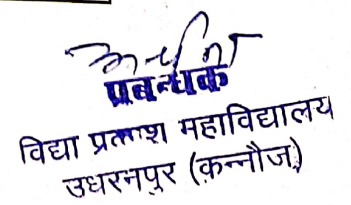 प्रबन्धक
विद्या प्रकाश महाविद्यालय
उधरनपुर (कन्नौज)